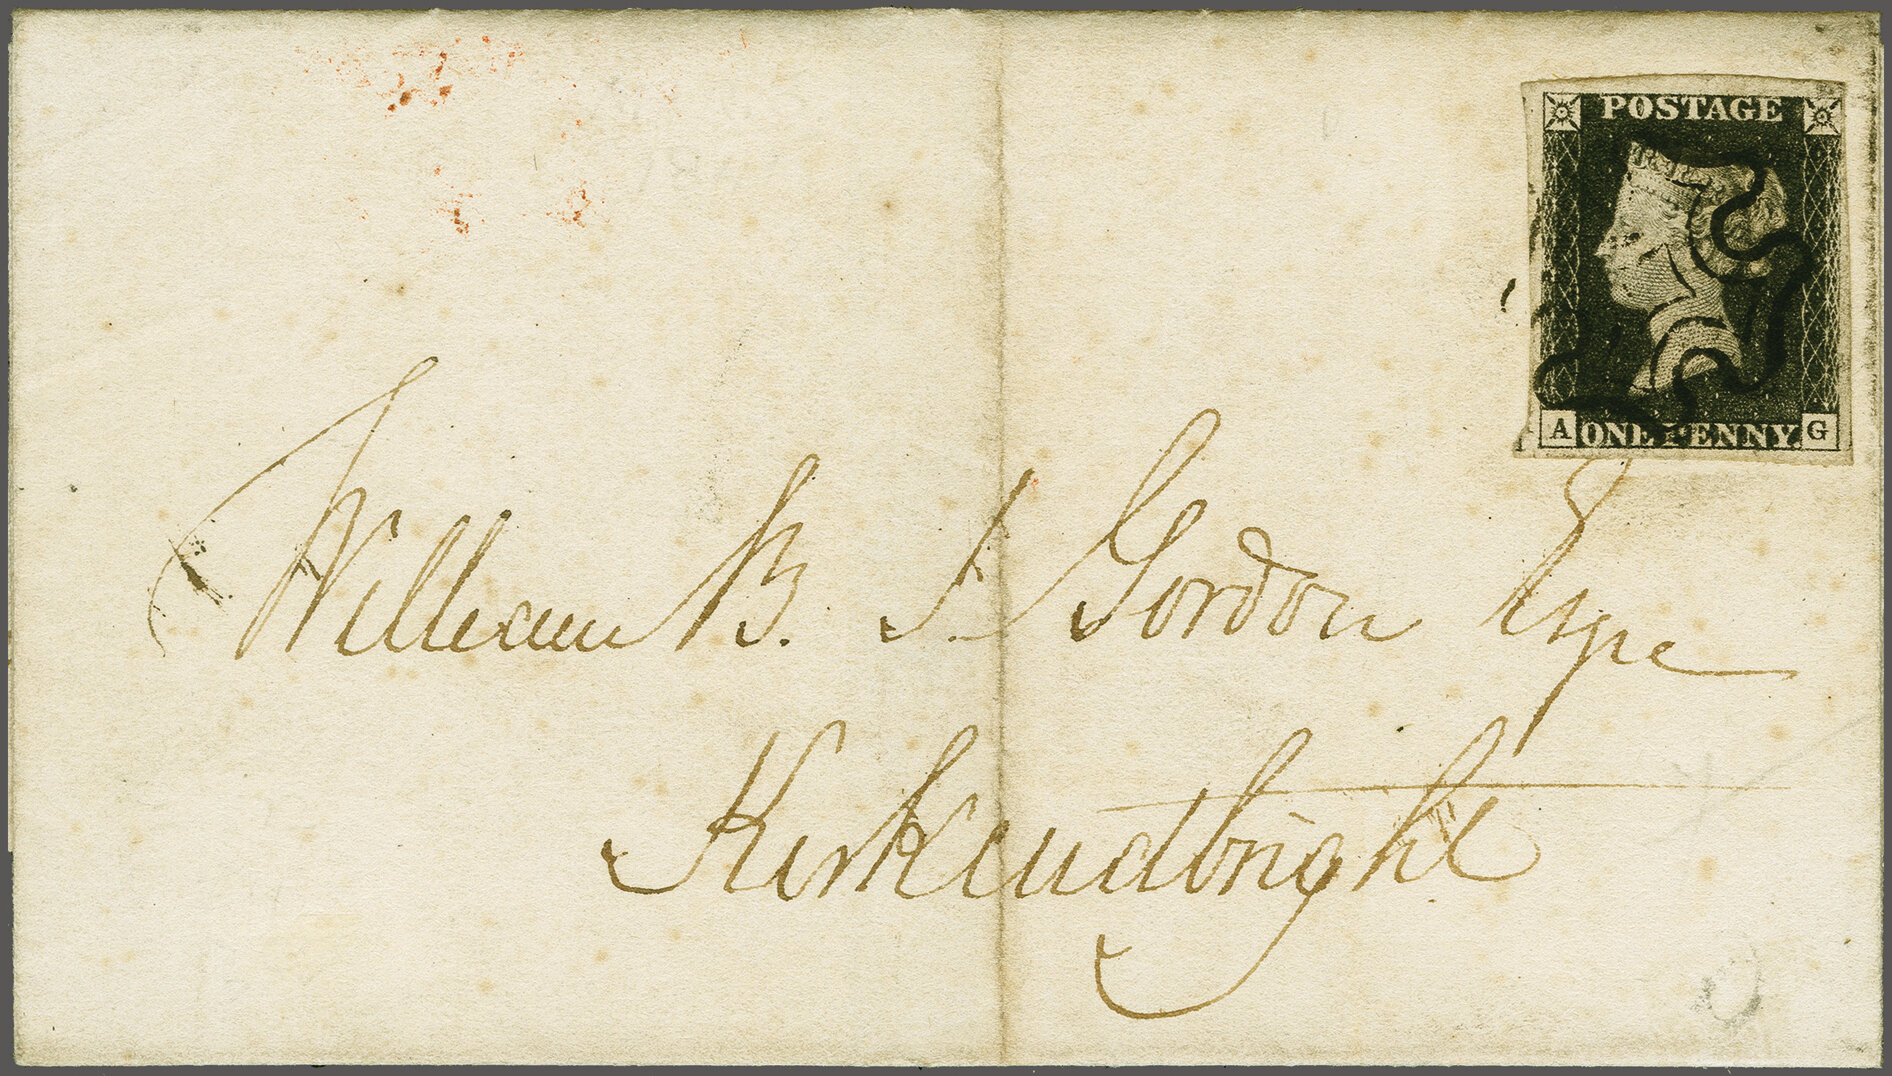 POSTAGE
A ONE PENNY. G
William B. I. Gordon Esqre
Kirkcudbright